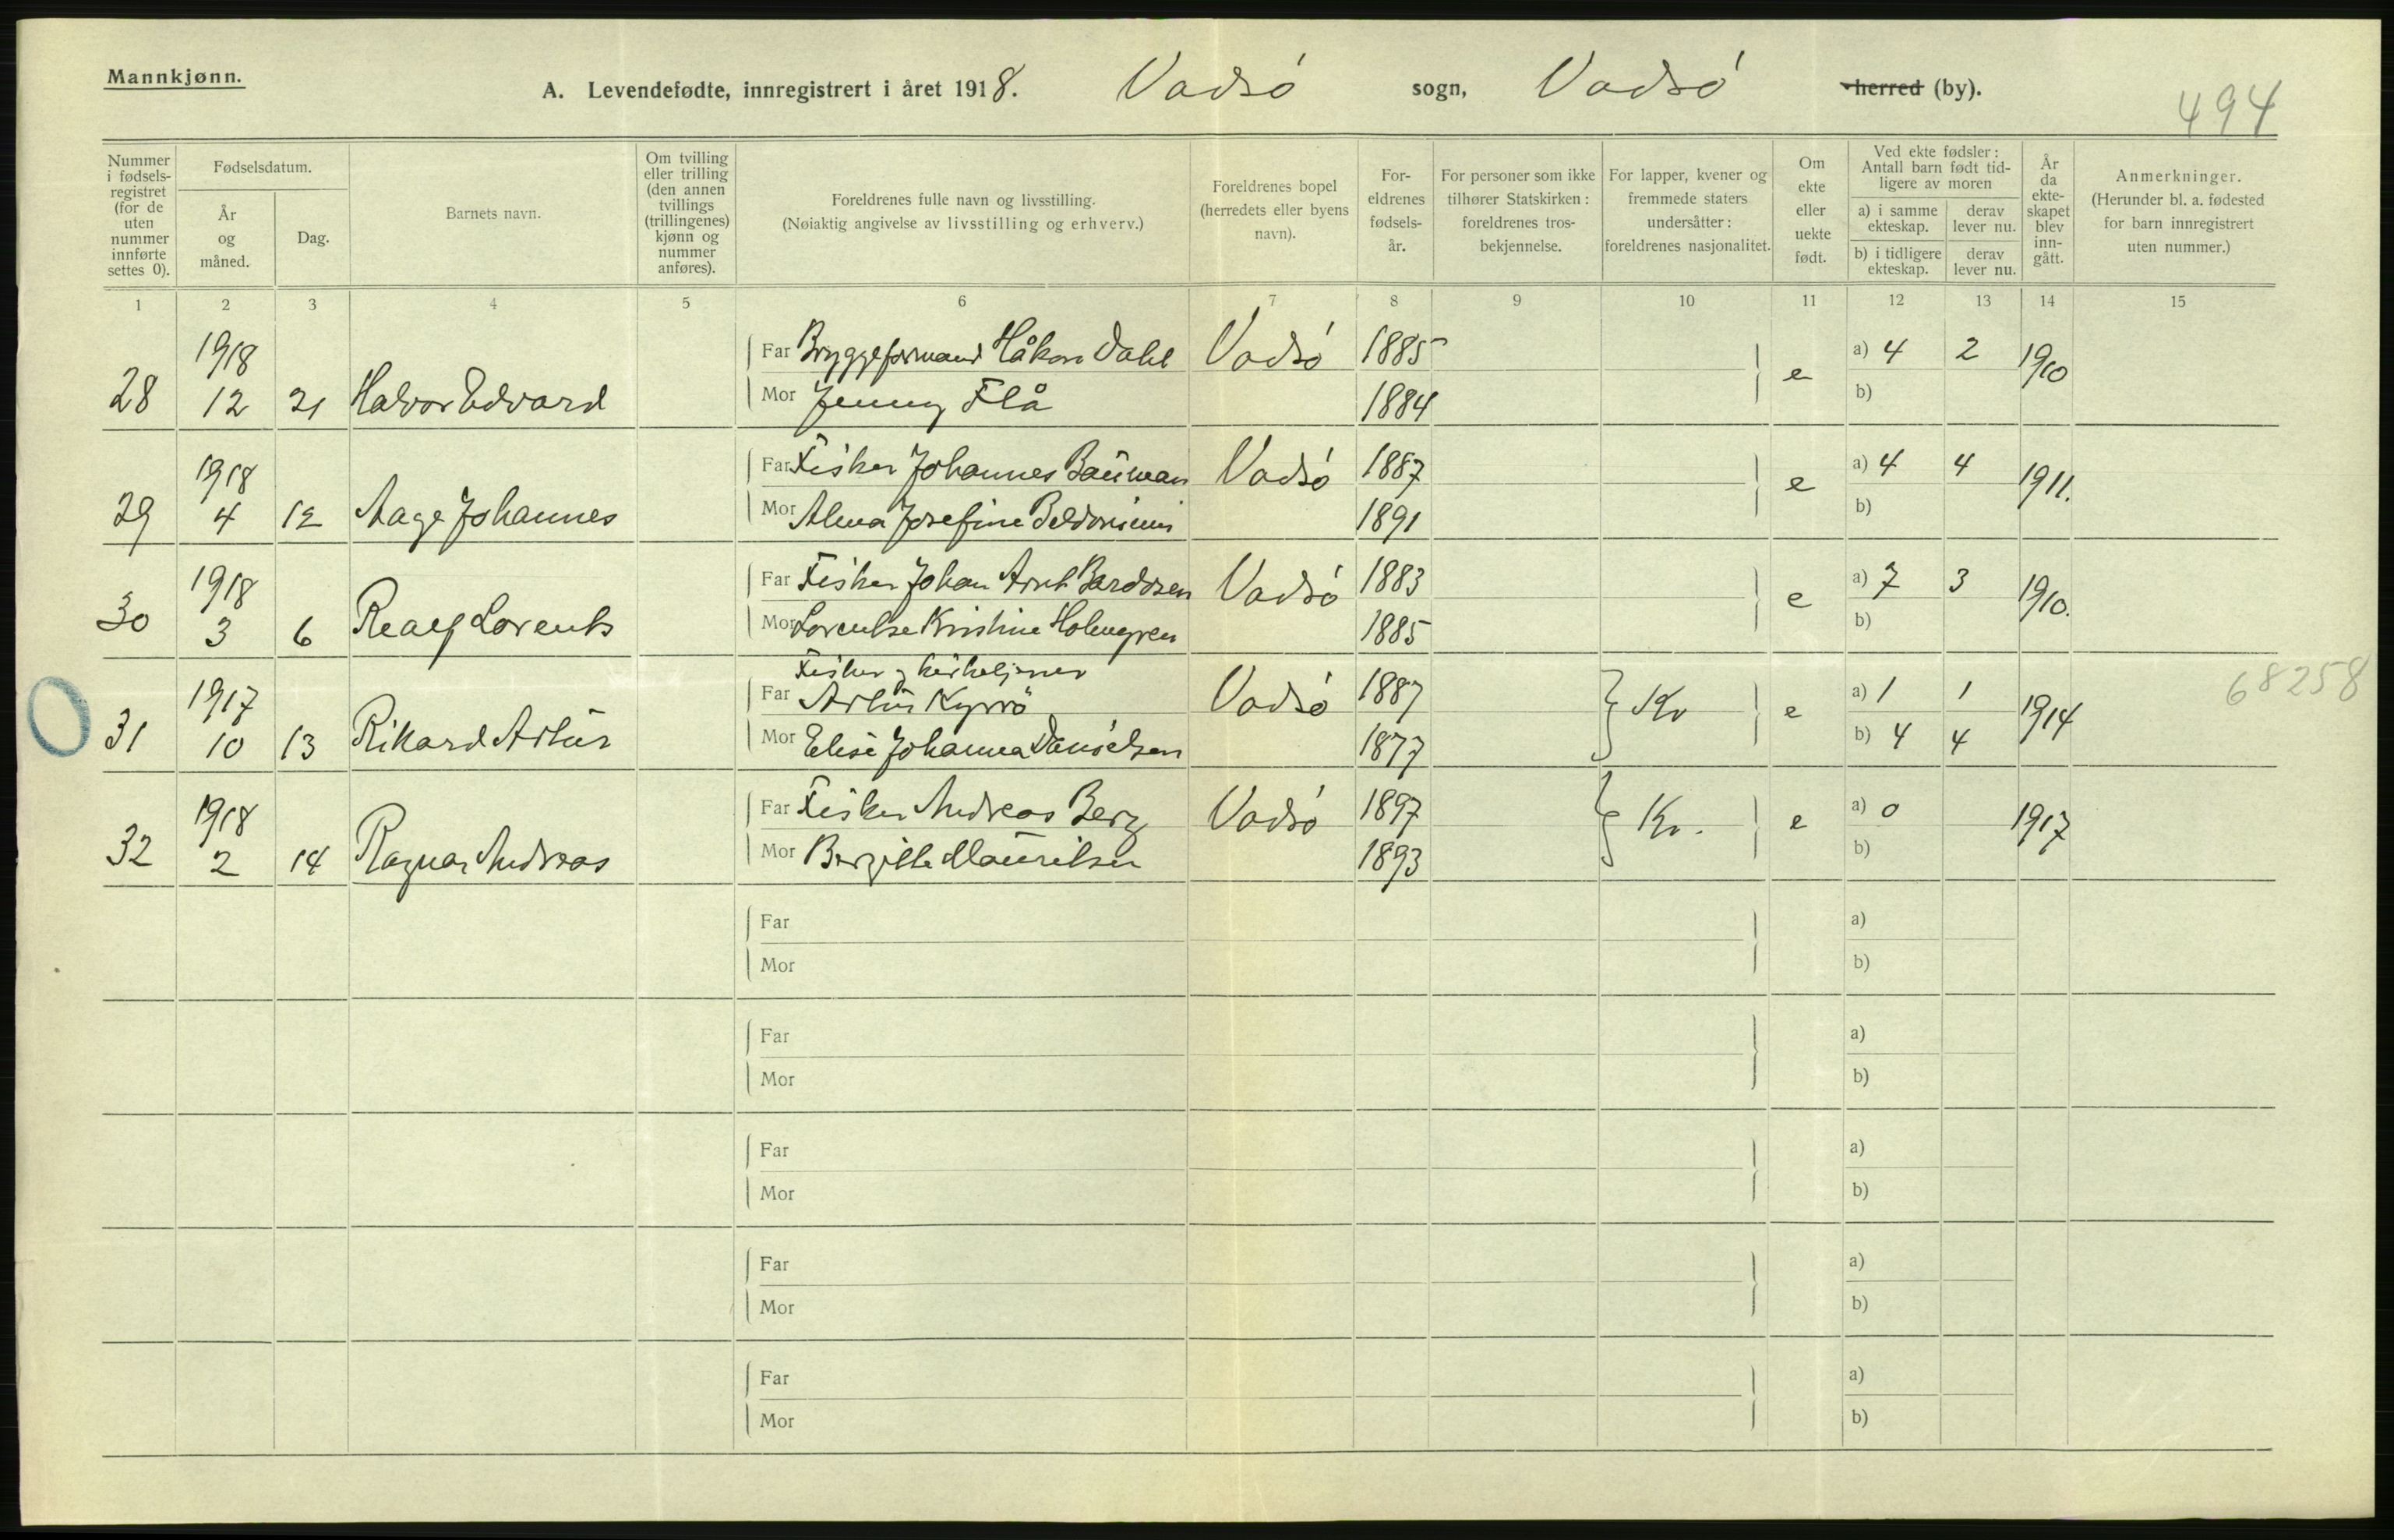 Mannkjønn.
A. Levendefødte, innregistrert i året 1918. Vadsö sogn, Vadsö herred (by).
494
Nummer i fødsels-registret (for de uten nummer innførte settes 0).
Fødselsdatum.
År og måned.
Dag.
Barnets navn.
Om tvilling eller trilling (den annen tvillings (trillingenes) kjønn og nummer anføres).
Foreldrenes fulle navn og livsstilling.
(Nøiaktig angivelse av livsstilling og erhverv.)
Foreldrenes bopel (herredets eller byens navn).
For-eldrenes fødsels-år.
For personer som ikke tilhører Statskirken: foreldrenes tros-bekjennelse.
For lapper, kvener og fremmede staters undersåtter: foreldrenes nasjonalitet.
Om ekte eller uekte født.
Ved ekte fødsler: Antall barn født tid-ligere av moren
a) i samme ekteskap.
derav lever nu.
b) i tidligere ekteskap.
derav lever nu.
År da ekte-skapet blev inn-gått.
Anmerkninger.
(Herunder bl. a. fødested for barn innregistrert uten nummer.)
1 2 3 4 5 6 7 8 9 10 11 12 13 14 15
1918 Far Bryggeformand Håkon Dahl Vadsö 1885 a) 4 2 1910
28 12 21 Halvor Edvard Mor Jenny Flå 1884 e b)
1918 Far Fisker Johannes Bauman Vadsö 1887 a) 4 4 1911.
29 4 12 Aage Johannes Mor Alma Josefine 1891 e b)
1918 Far Fisker Johan Arnt Bardosen Vadsö 1883 a) 7 3 1910.
30 3 6 Lorents Mor Lorentse Kristine Holmgren 1885 e b)
Fisker
1917 Far Artur Kyrrö Vadsö 1887 Kv e a) 1 1 1914
68258
31 10 13 Rikard Artur Mor Elise Johanna Danielsen 1877 b) 4 4
1918 Far Fisker Andreas Berg Vadsö 1897 Kv. e a) 0 1917
32 2 14 Ragnar Andreas Mor Bergitte Mauritsen 1893 b)
Far a)
Mor b)
Far a)
Mor b)
Far a)
Mor b)
Far a)
Mor b)
Far a)
Mor b)